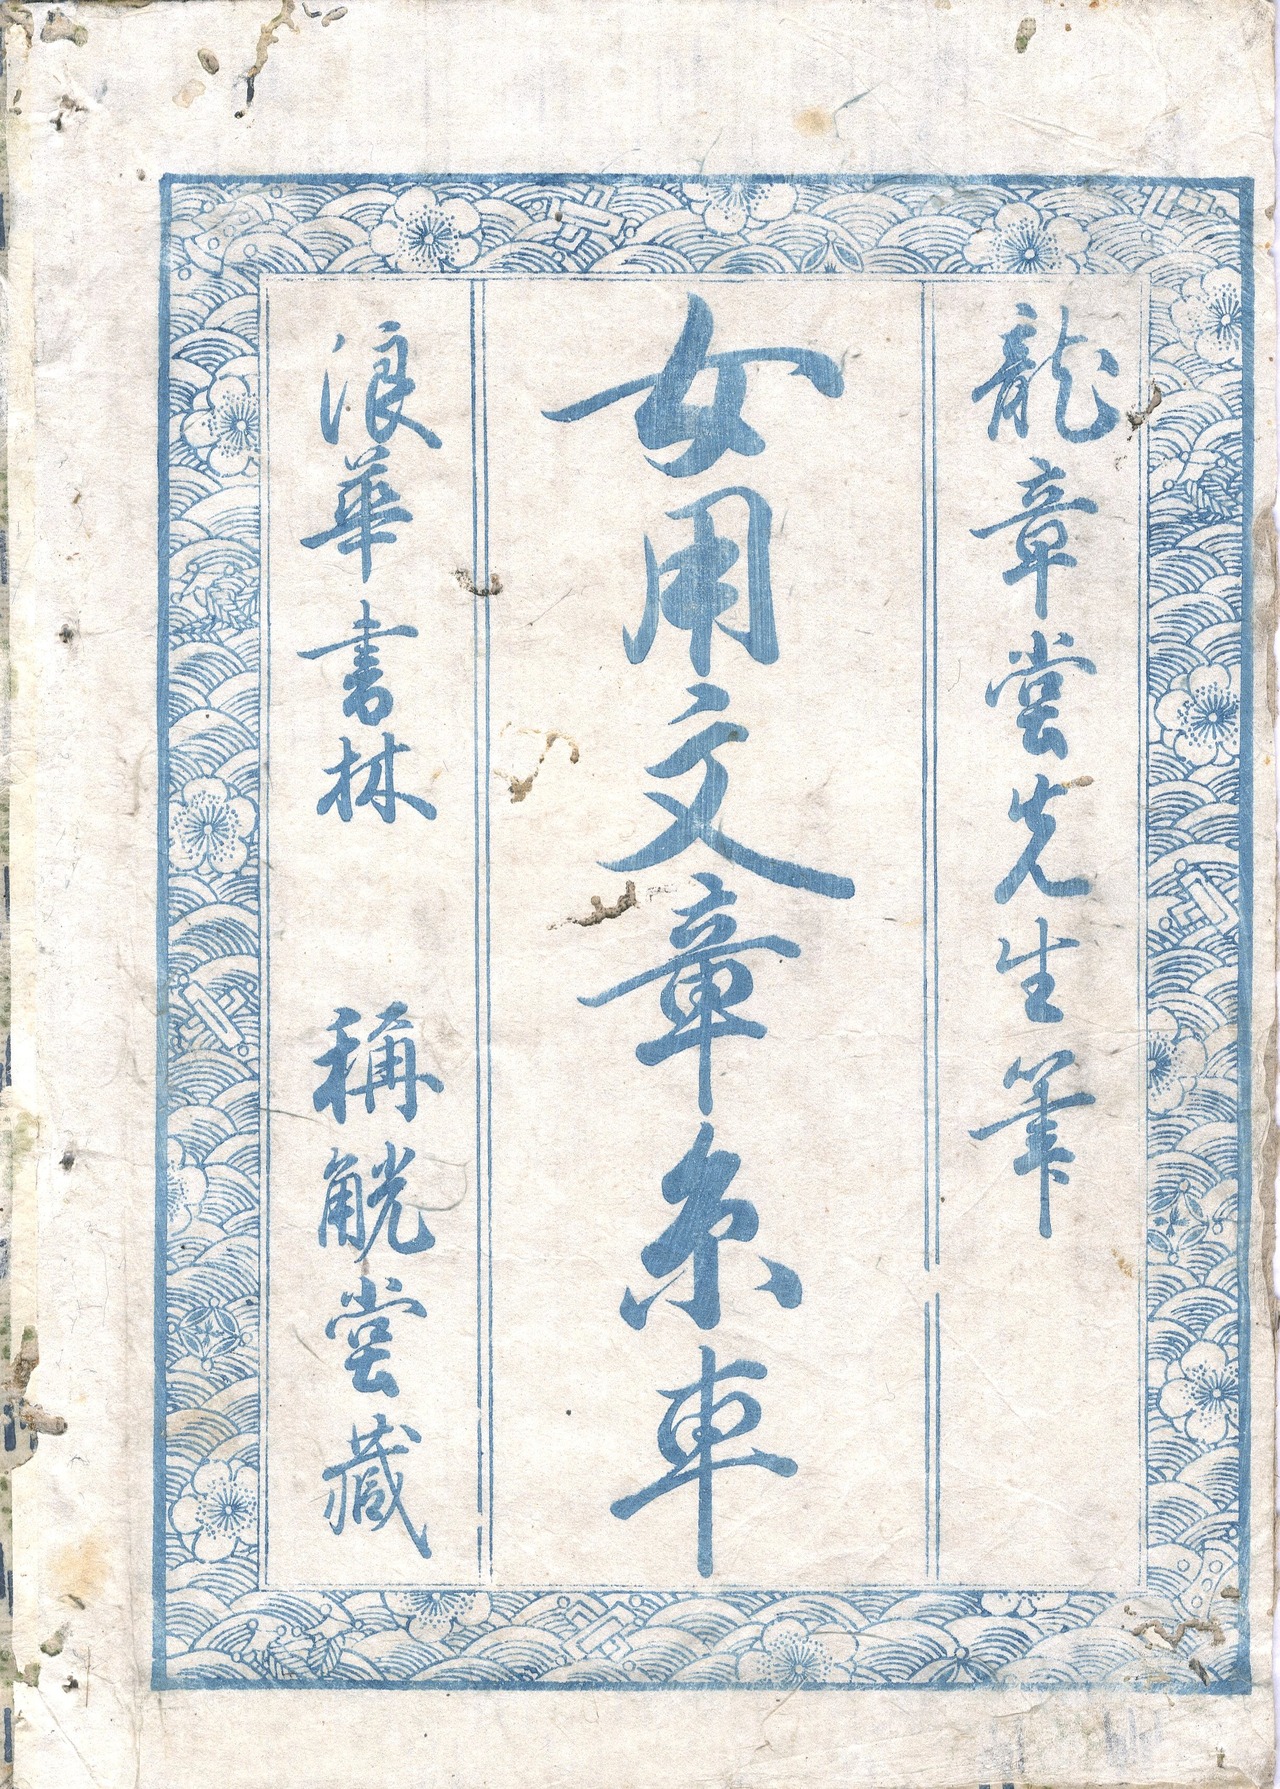 龍章堂先生筆
女用文章糸車
浪華書林 稱觥堂藏